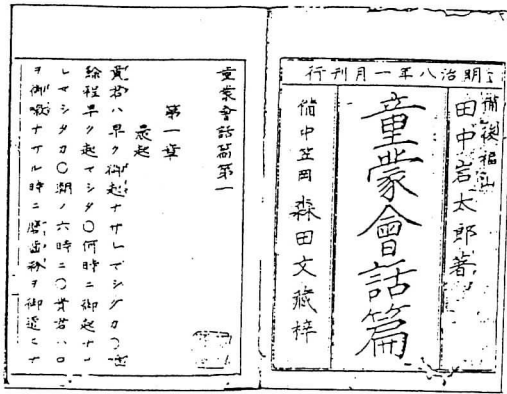 明治八年一月刊行
備後福山
田中岩太郎著
童蒙會話篇
備中笠岡 森田文藏梓
童蒙會話篇第一
第一章
晨起
貴君ハ早ク御起ナサレマシタカ〇
餘程早ク起マシタ〇何時ニ御起ナサ
レマシタカ〇朝ノ六時ニ〇貴君ハ口
ヲ御嗽ナサル時ニ磨齒粉ヲ御遣ヒナ